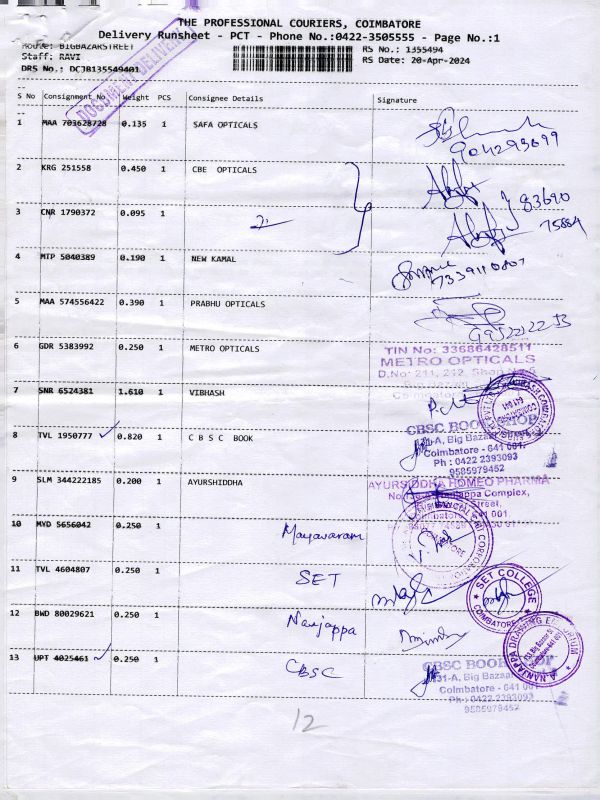 THE PROFESSIONAL COURIERS, COIMBATORE
Delivery Runsheet - PCT - Phone No.:0422-3505555 - Page No.:1
Route: BIGBAZARSTREET
RS No.: 1355494
Staff: RAVI
RS Date: 20-Apr-2024
DRS No.: DCJB135549401
S No Consignment No Weight PCS Consignee Details Signature
1 MAA 703628728 0.135 1 SAFA OPTICALS
2 KRG 251558 0.450 1 CBE OPTICALS
83690
3 CNR 1790372 0.095 1
75884
4 MTP 5040389 0.190 1 NEW KAMAL
5 MAA 574556422 0.390 1 PRABHU OPTICALS
6 GDR 5383992 0.250 1 METRO OPTICALS
TIN No: 33686428511
METRO OPTICALS
D.No: 211, 242,
7 SNR 6524381 1.610 1 VIBHASH
CBSC BOOK SHOP
8 TVL 1950777 0.820 1 C B S C BOOK
Coimbatore - 641 001.
Ph : 0422 2393093
9585979452
9 SLM 344222185 0.200 1 AYURSHIDDHA
AYURSIDDHA HOMEO PHARMA
10 MYD 5656042 0.250 1 Mayavaram
11 TVL 4604807 0.250 1 SET
SET COLLEGE
COIMBATORE
12 BWD 80029621 0.250 1 Nanjappa
A.NANJAPPA DRAWING EMPORIUM
13 UPT 4025461 0.250 1 CBSC
CBSC BOOK SHOP
Coimbatore - 641 001
Ph : 0422 2393093
9585979452
12